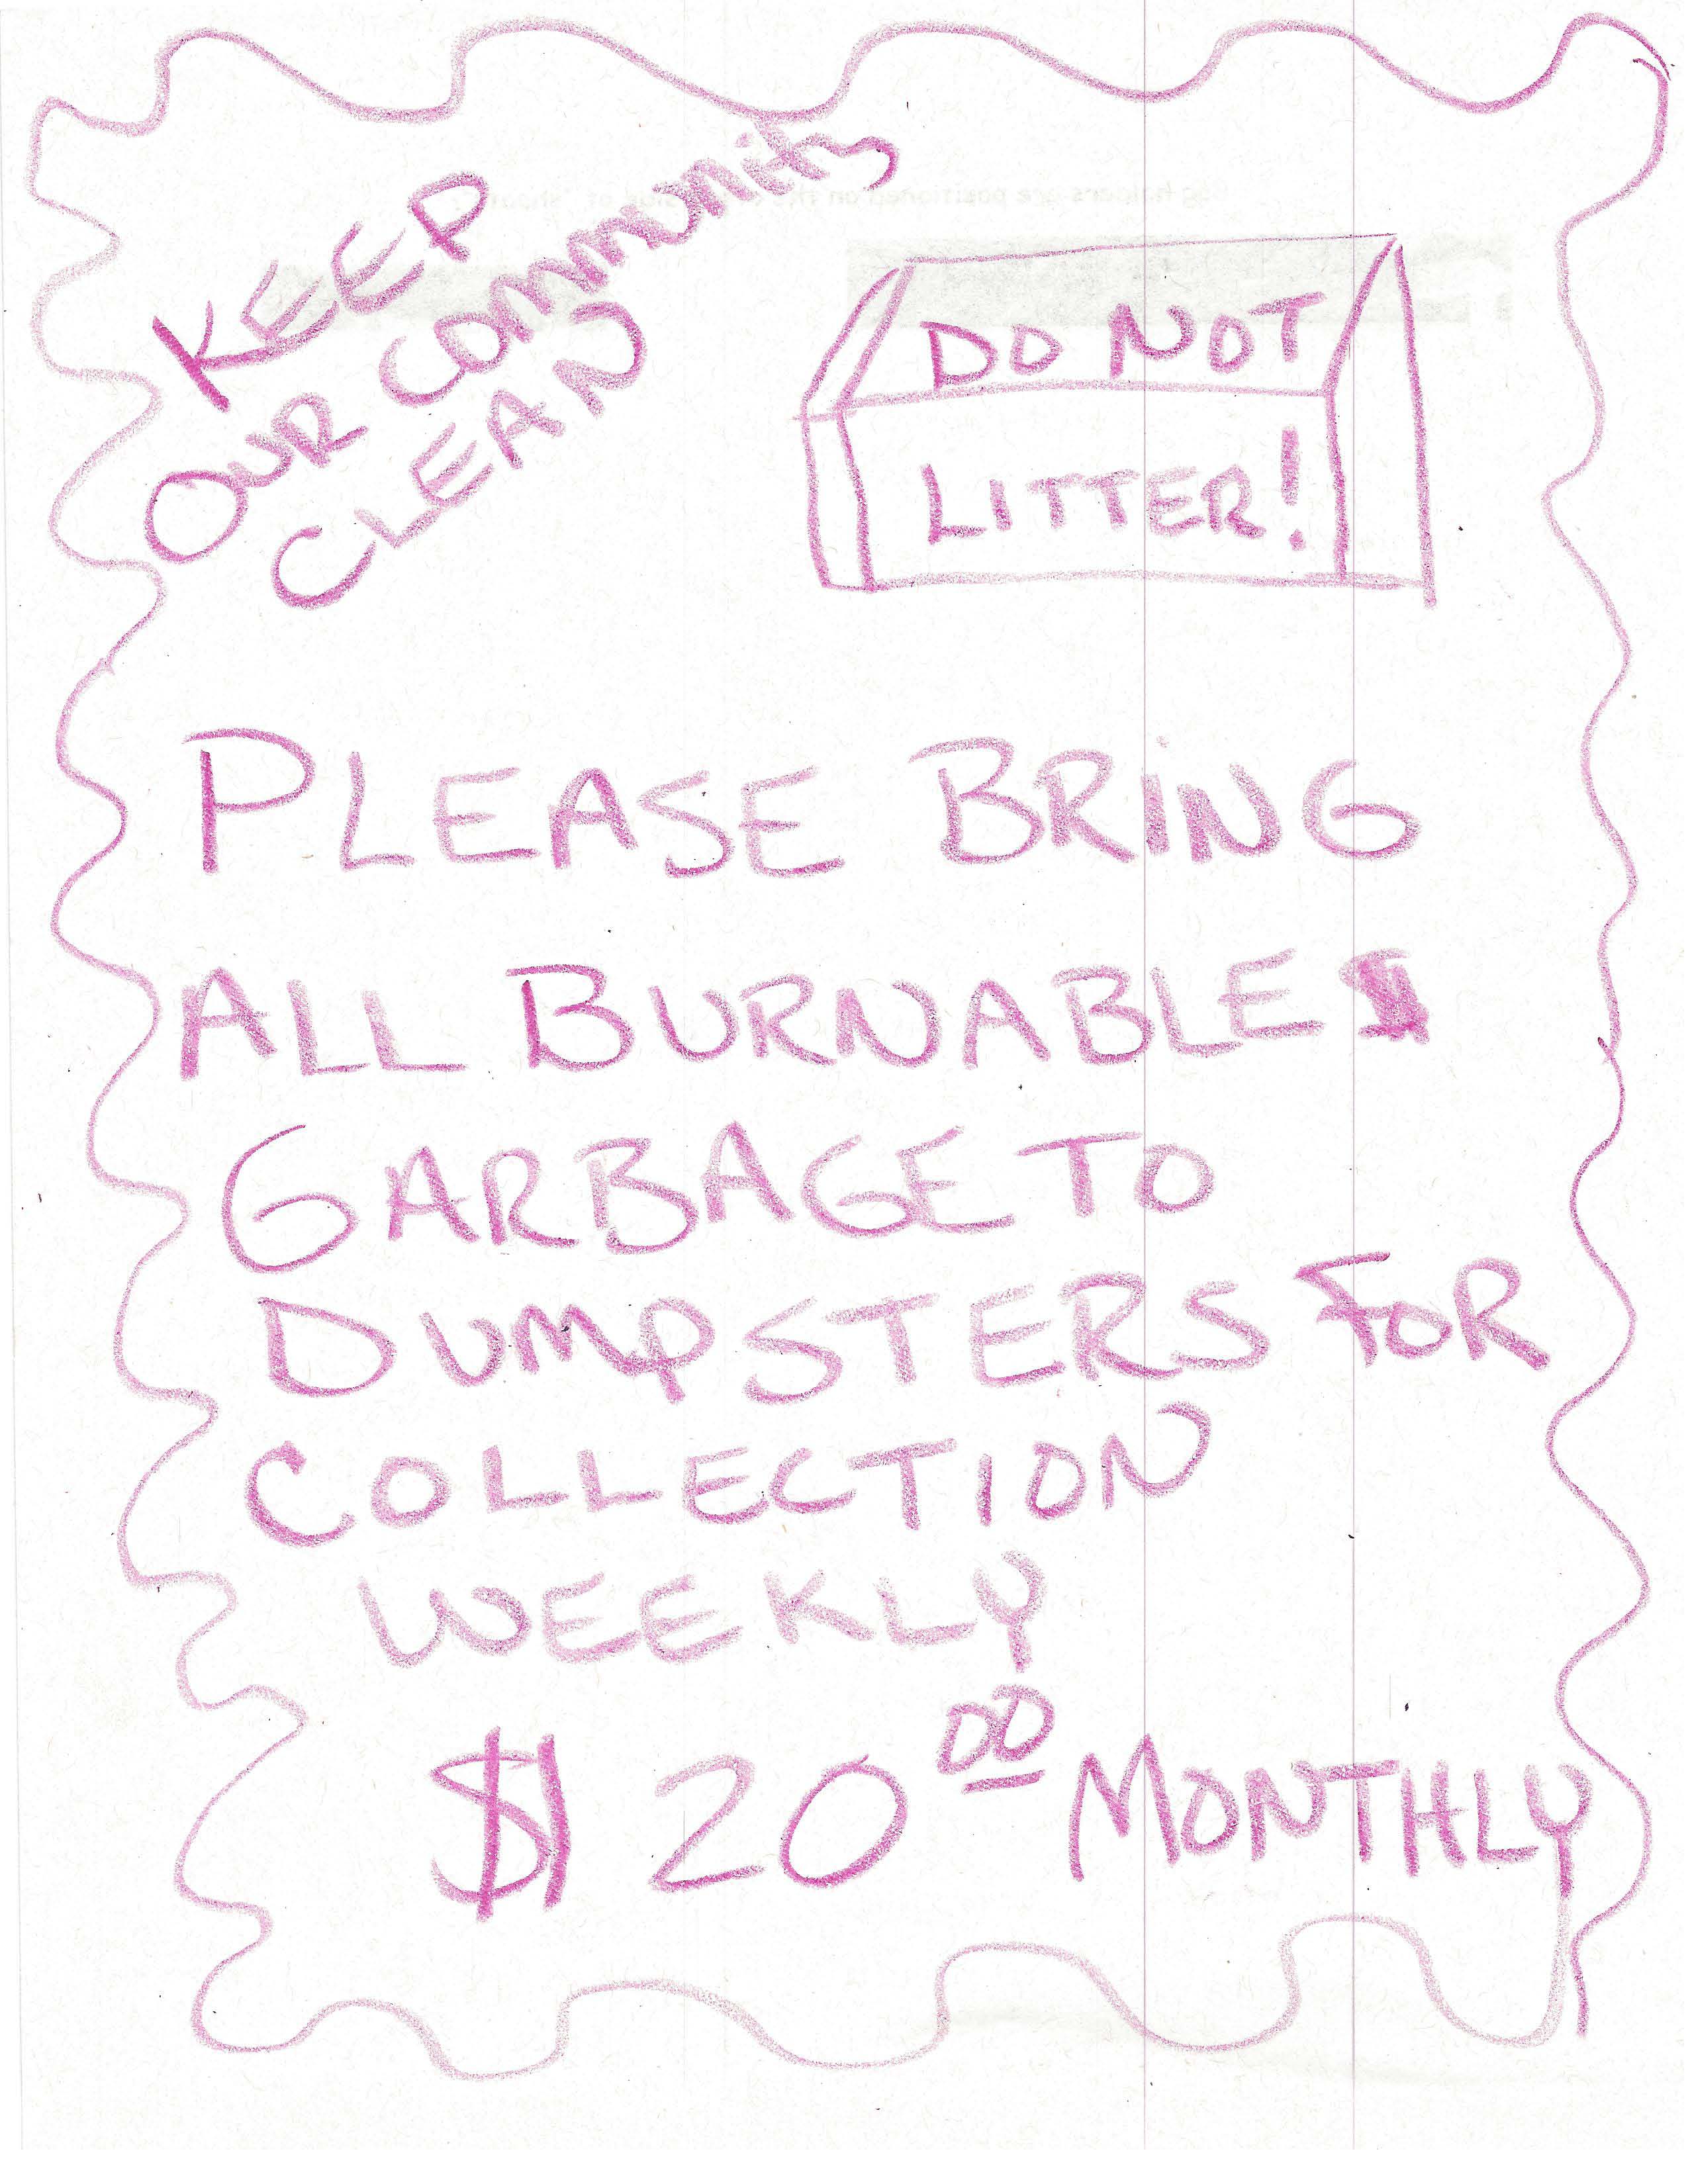 KEEP
OUR COMMUNITY
CLEAN
DO NOT
LITTER!
PLEASE BRING
ALL BURNABLE
GARBAGE TO
DUMPSTERS FOR
COLLECTION
WEEKLY
$20.00 MONTHLY